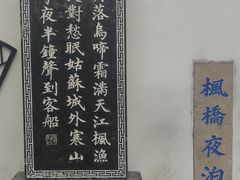 楓橋夜泊
落烏啼霜滿天江楓漁
對愁眠姑蘇城外寒山
夜半鐘聲到客船